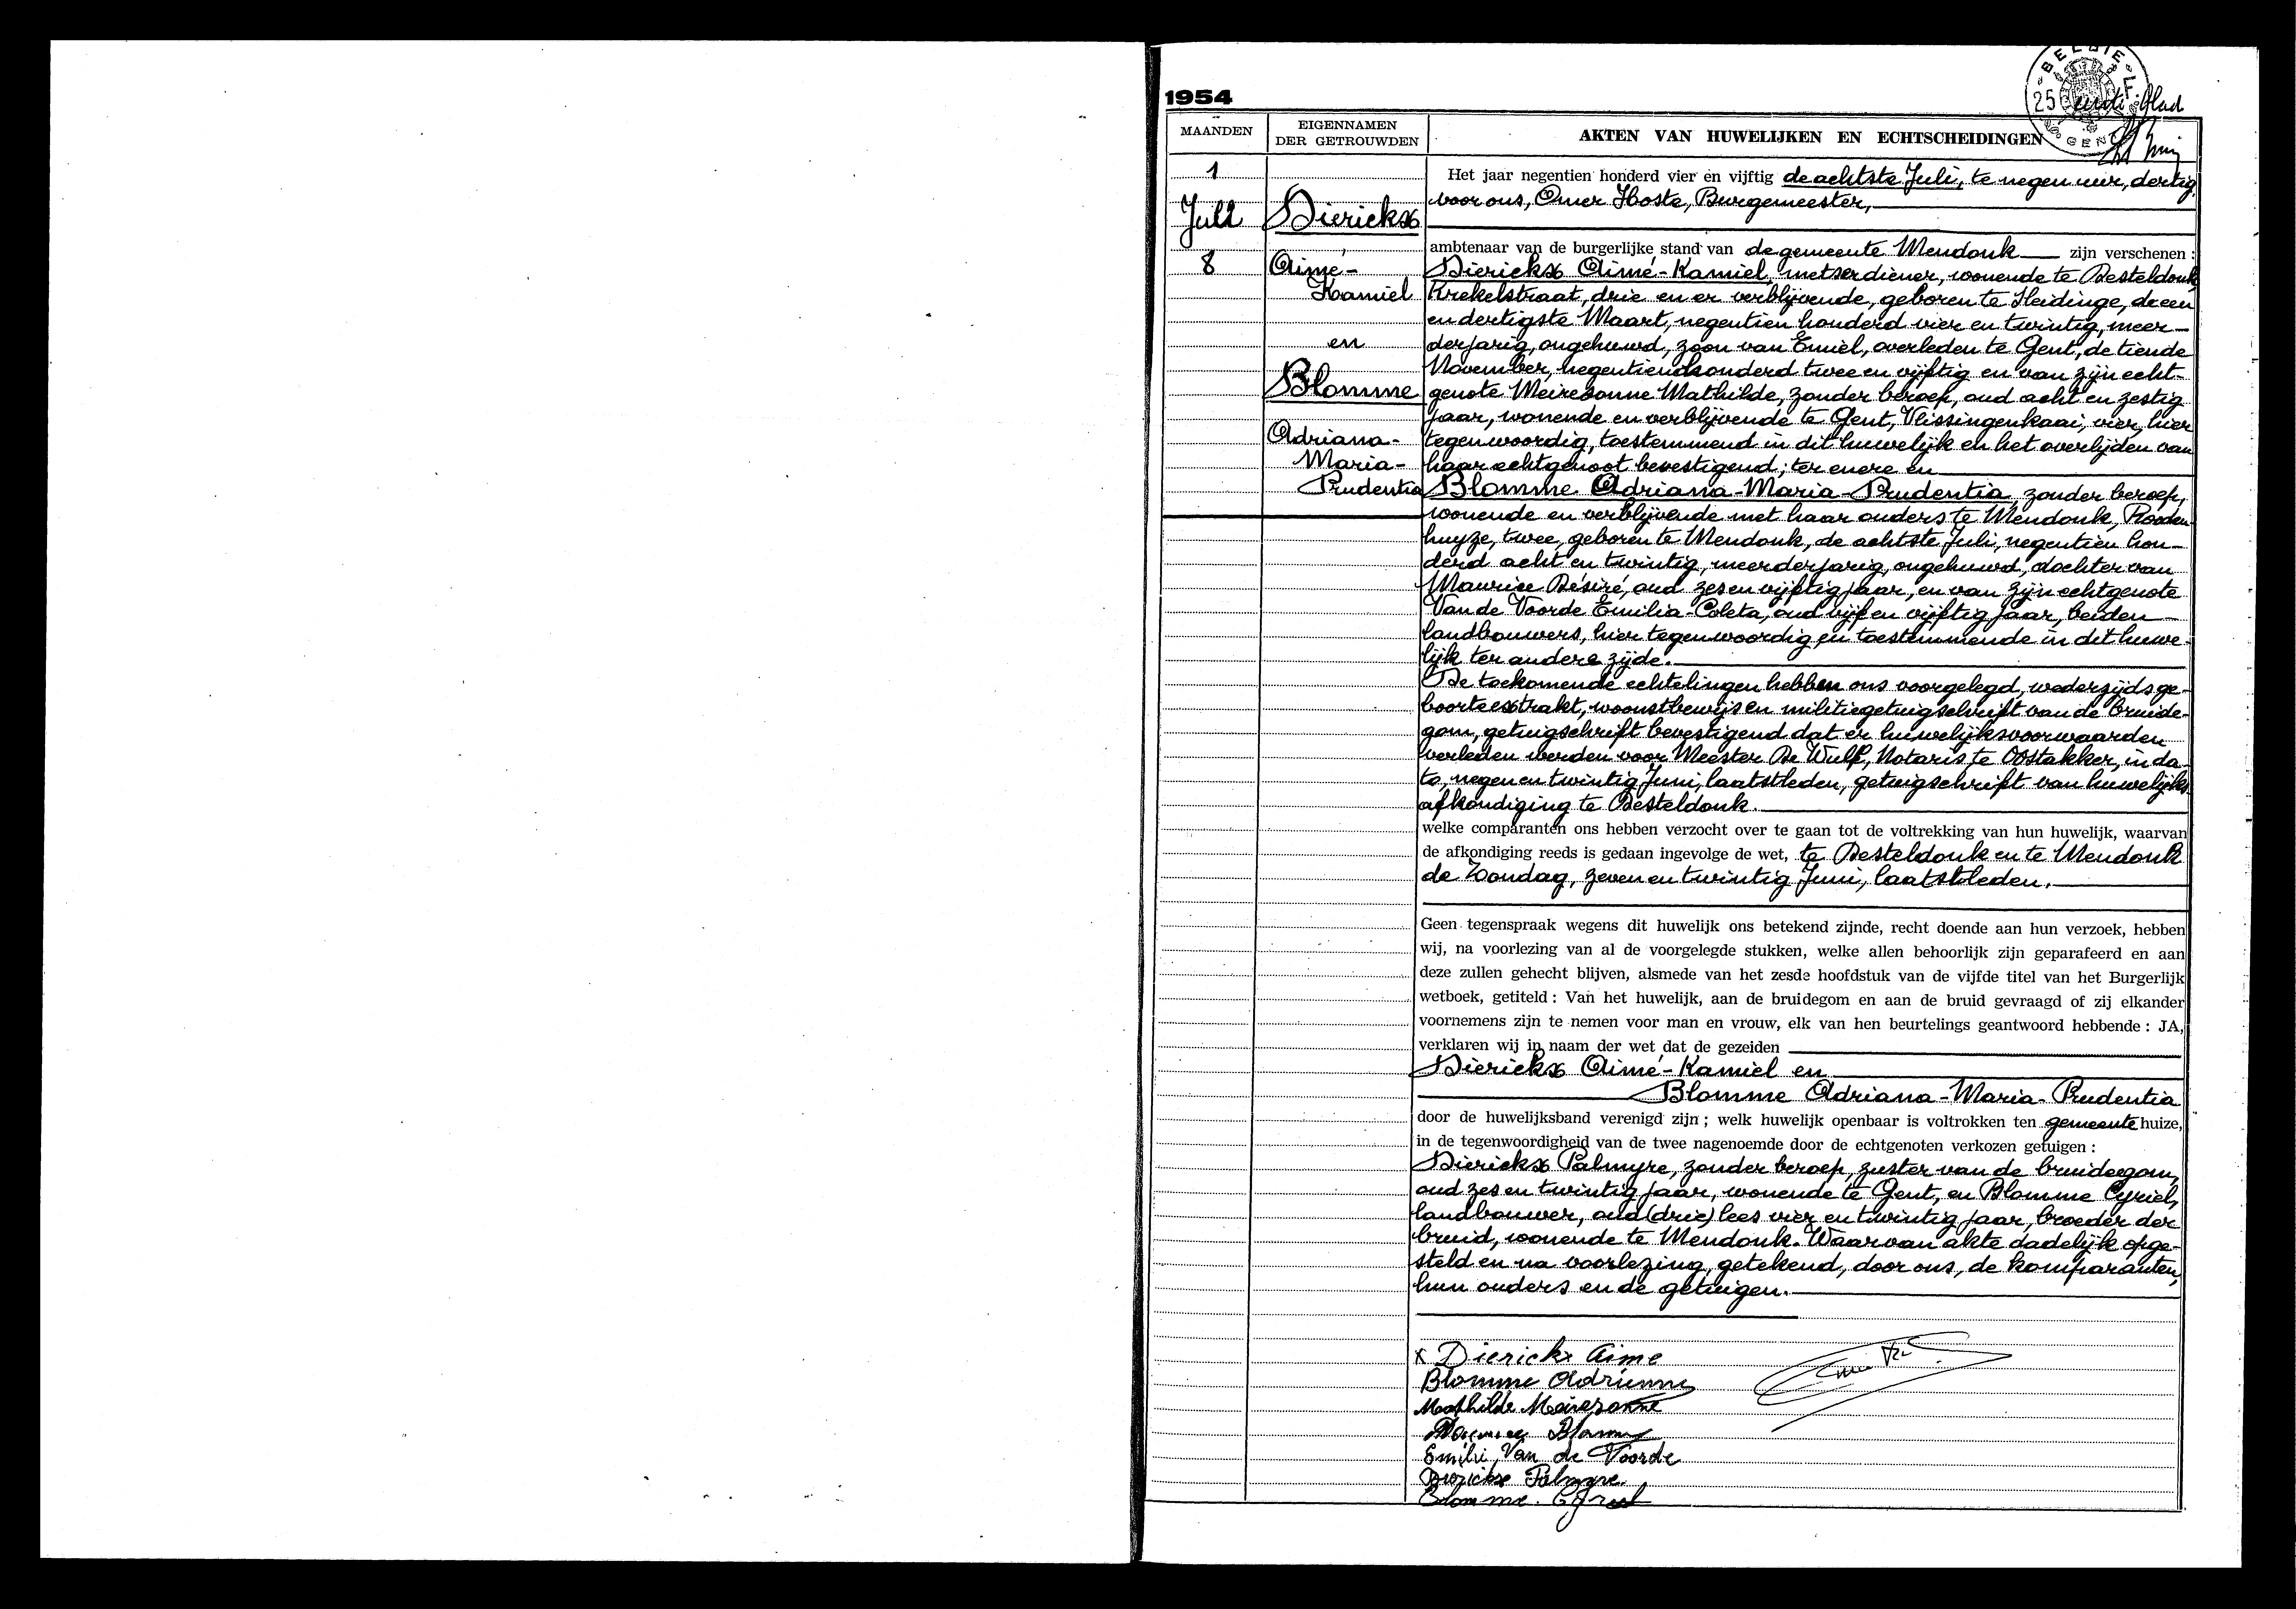 1954
BELGIE
25
GENT
eerste blad
MAANDEN
EIGENNAMEN
DER GETROUWDEN
AKTEN VAN HUWELIJKEN EN ECHTSCHEIDINGEN
1
Juli
8
Dierickx
Aimé-
Kamiel
en
Blomme
Adriana-
Maria-
Prudentia
Het jaar negentien honderd vier en vijftig de achtste Juli, te negen uur, dertig,
voor ons, Omer Hoste, Burgemeester,
ambtenaar van de burgerlijke stand van de gemeente Mendonk zijn verschenen :
Dierickx Aimé-Kamiel, metserdiener, wonende te Desteldonk,
Krekelstraat, drie en er verblijvende, geboren te Sleidinge, de een
en dertigste Maart, negentien honderd vier en twintig, meer-
derjarig, ongehuwd, zoon van Emiel, overleden te Gent, de tiende
November, negentienhonderd twee en vijftig en van zijn echt-
genote Meiresonne Mathilde, zonder beroep, oud acht en zestig
jaar, wonende en verblijvende te Gent, Vlissingenkaai, vier, hier
tegenwoordig, toestemmend in dit huwelijk en het overlijden van
haar echtgenoot bevestigend; ter enere en
Blomme Adriana-Maria-Prudentia, zonder beroep,
wonende en verblijvende met haar ouders te Mendonk, Rooden
huyze, twee, geboren te Mendonk, de achtste Juli, negentien hon-
derd acht en twintig, meerderjarig, ongehuwd, dochter van
Maurice Désiré, oud zes en vijftig jaar, en van zijn echtgenote
Van de Voorde Emilia-Coleta, oud vijf en vijftig jaar, beiden
landbouwers, hier tegenwoordig en toestemmende in dit huwe-
lijk ter andere zijde.
De toekomende echtelingen hebben ons voorgelegd, wederzijds ge-
boorteextrakt, woonstbewijs en militiegetuigschrift van de bruide-
gom, getuigschrift bevestigend dat er huwelijksvoorwaarden
verleden werden voor Meester De Wulf, Notaris te Oostakker, in da-
to, negen en twintig Juni, laatstleden, getuigschrift van huwelijks
afkondiging te Desteldonk.
welke comparanten ons hebben verzocht over te gaan tot de voltrekking van hun huwelijk, waarvan
de afkondiging reeds is gedaan ingevolge de wet, te Desteldonk en te Mendonk
de Zondag, zeven en twintig Juni, laatstleden.
Geen tegenspraak wegens dit huwelijk ons betekend zijnde, recht doende aan hun verzoek, hebben
wij, na voorlezing van al de voorgelegde stukken, welke allen behoorlijk zijn geparafeerd en aan
deze zullen gehecht blijven, alsmede van het zesde hoofdstuk van de vijfde titel van het Burgerlijk
wetboek, getiteld : Van het huwelijk, aan de bruidegom en aan de bruid gevraagd of zij elkander
voornemens zijn te nemen voor man en vrouw, elk van hen beurtelings geantwoord hebbende : JA,
verklaren wij in naam der wet dat de gezeiden
Dierickx Aimé-Kamiel en
Blomme Adriana-Maria-Prudentia
door de huwelijksband verenigd zijn ; welk huwelijk openbaar is voltrokken ten gemeente huize,
in de tegenwoordigheid van de twee nagenoemde door de echtgenoten verkozen getuigen :
Dierickx Palmyre, zonder beroep, zuster van de bruidegom,
oud zes en twintig jaar, wonende te Gent, en Blomme Cyriel,
landbouwer, oud (drie) lees vier en twintig jaar, broeder der
bruid, wonende te Mendonk. Waarvan akte dadelijk opge-
steld en na voorlezing, getekend, door ons, de komparanten,
hun ouders en de getuigen.
x Dierickx Aime
Blomme Adrienne
Mathilde Meiresonne
Maurice Blomme
Emilie Van de Voorde
Dierickx Palmyre
Blomme Cyriel